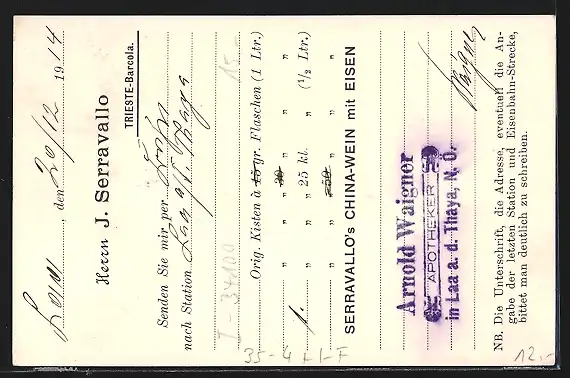 Laa, den 20/12 1914
Herrn J. Serravallo
TRIESTE-Barcola.
Senden Sie mir per
nach Station Laa a/d Thaya
Orig. Kisten à 15 gr. Flaschen (1 Ltr.)
" " " 30 " " "
1. " " " 25 kl. " (1/2 Ltr.)
" " " 50 " " "
SERRAVALLO's CHINA-WEIN mit EISEN
Arnold Waigner
APOTHEKER
in Laa a. d. Thaya, N. Ö.
Waigner
NB. Die Unterschrift, die Adresse, eventuell die An-
gabe der letzten Station und Eisenbahn-Strecke,
bittet man deutlich zu schreiben.
15.-
I - 34100
35-4+1-F
12.-